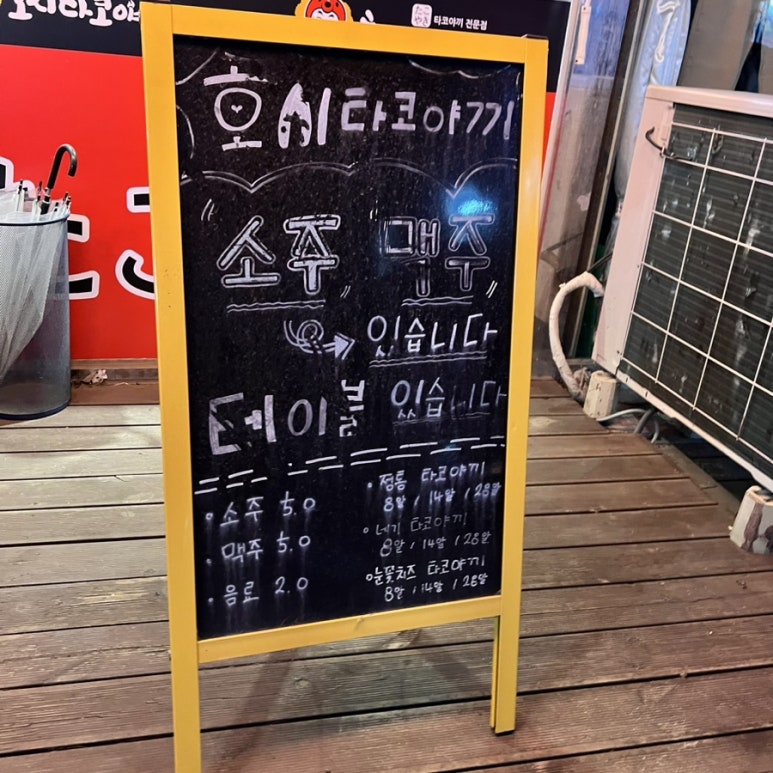 호시타코야
たこ
やき
타코야끼 전문점
호시타코야끼
"소주 맥주"
있습니다
테이블 있습니다
• 소주 5.0
• 맥주 5.0
• 음료 2.0
• 정통 타코야끼
8알 / 14알 / 28알
• 네기 타코야끼
8알 / 14알 / 28알
• 눈꽃치즈 타코야끼
8알 / 14알 / 28알